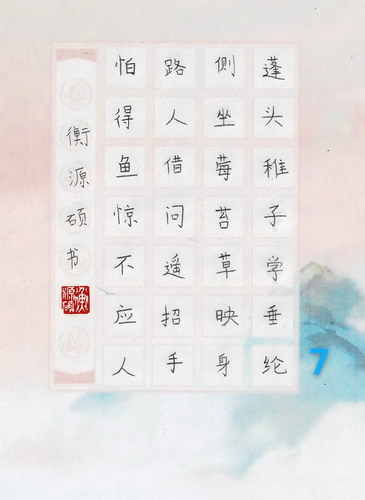 蓬头稚子学垂纶
侧坐莓苔草映身
路人借问遥招手
怕得鱼惊不应人
衡源硕书
7